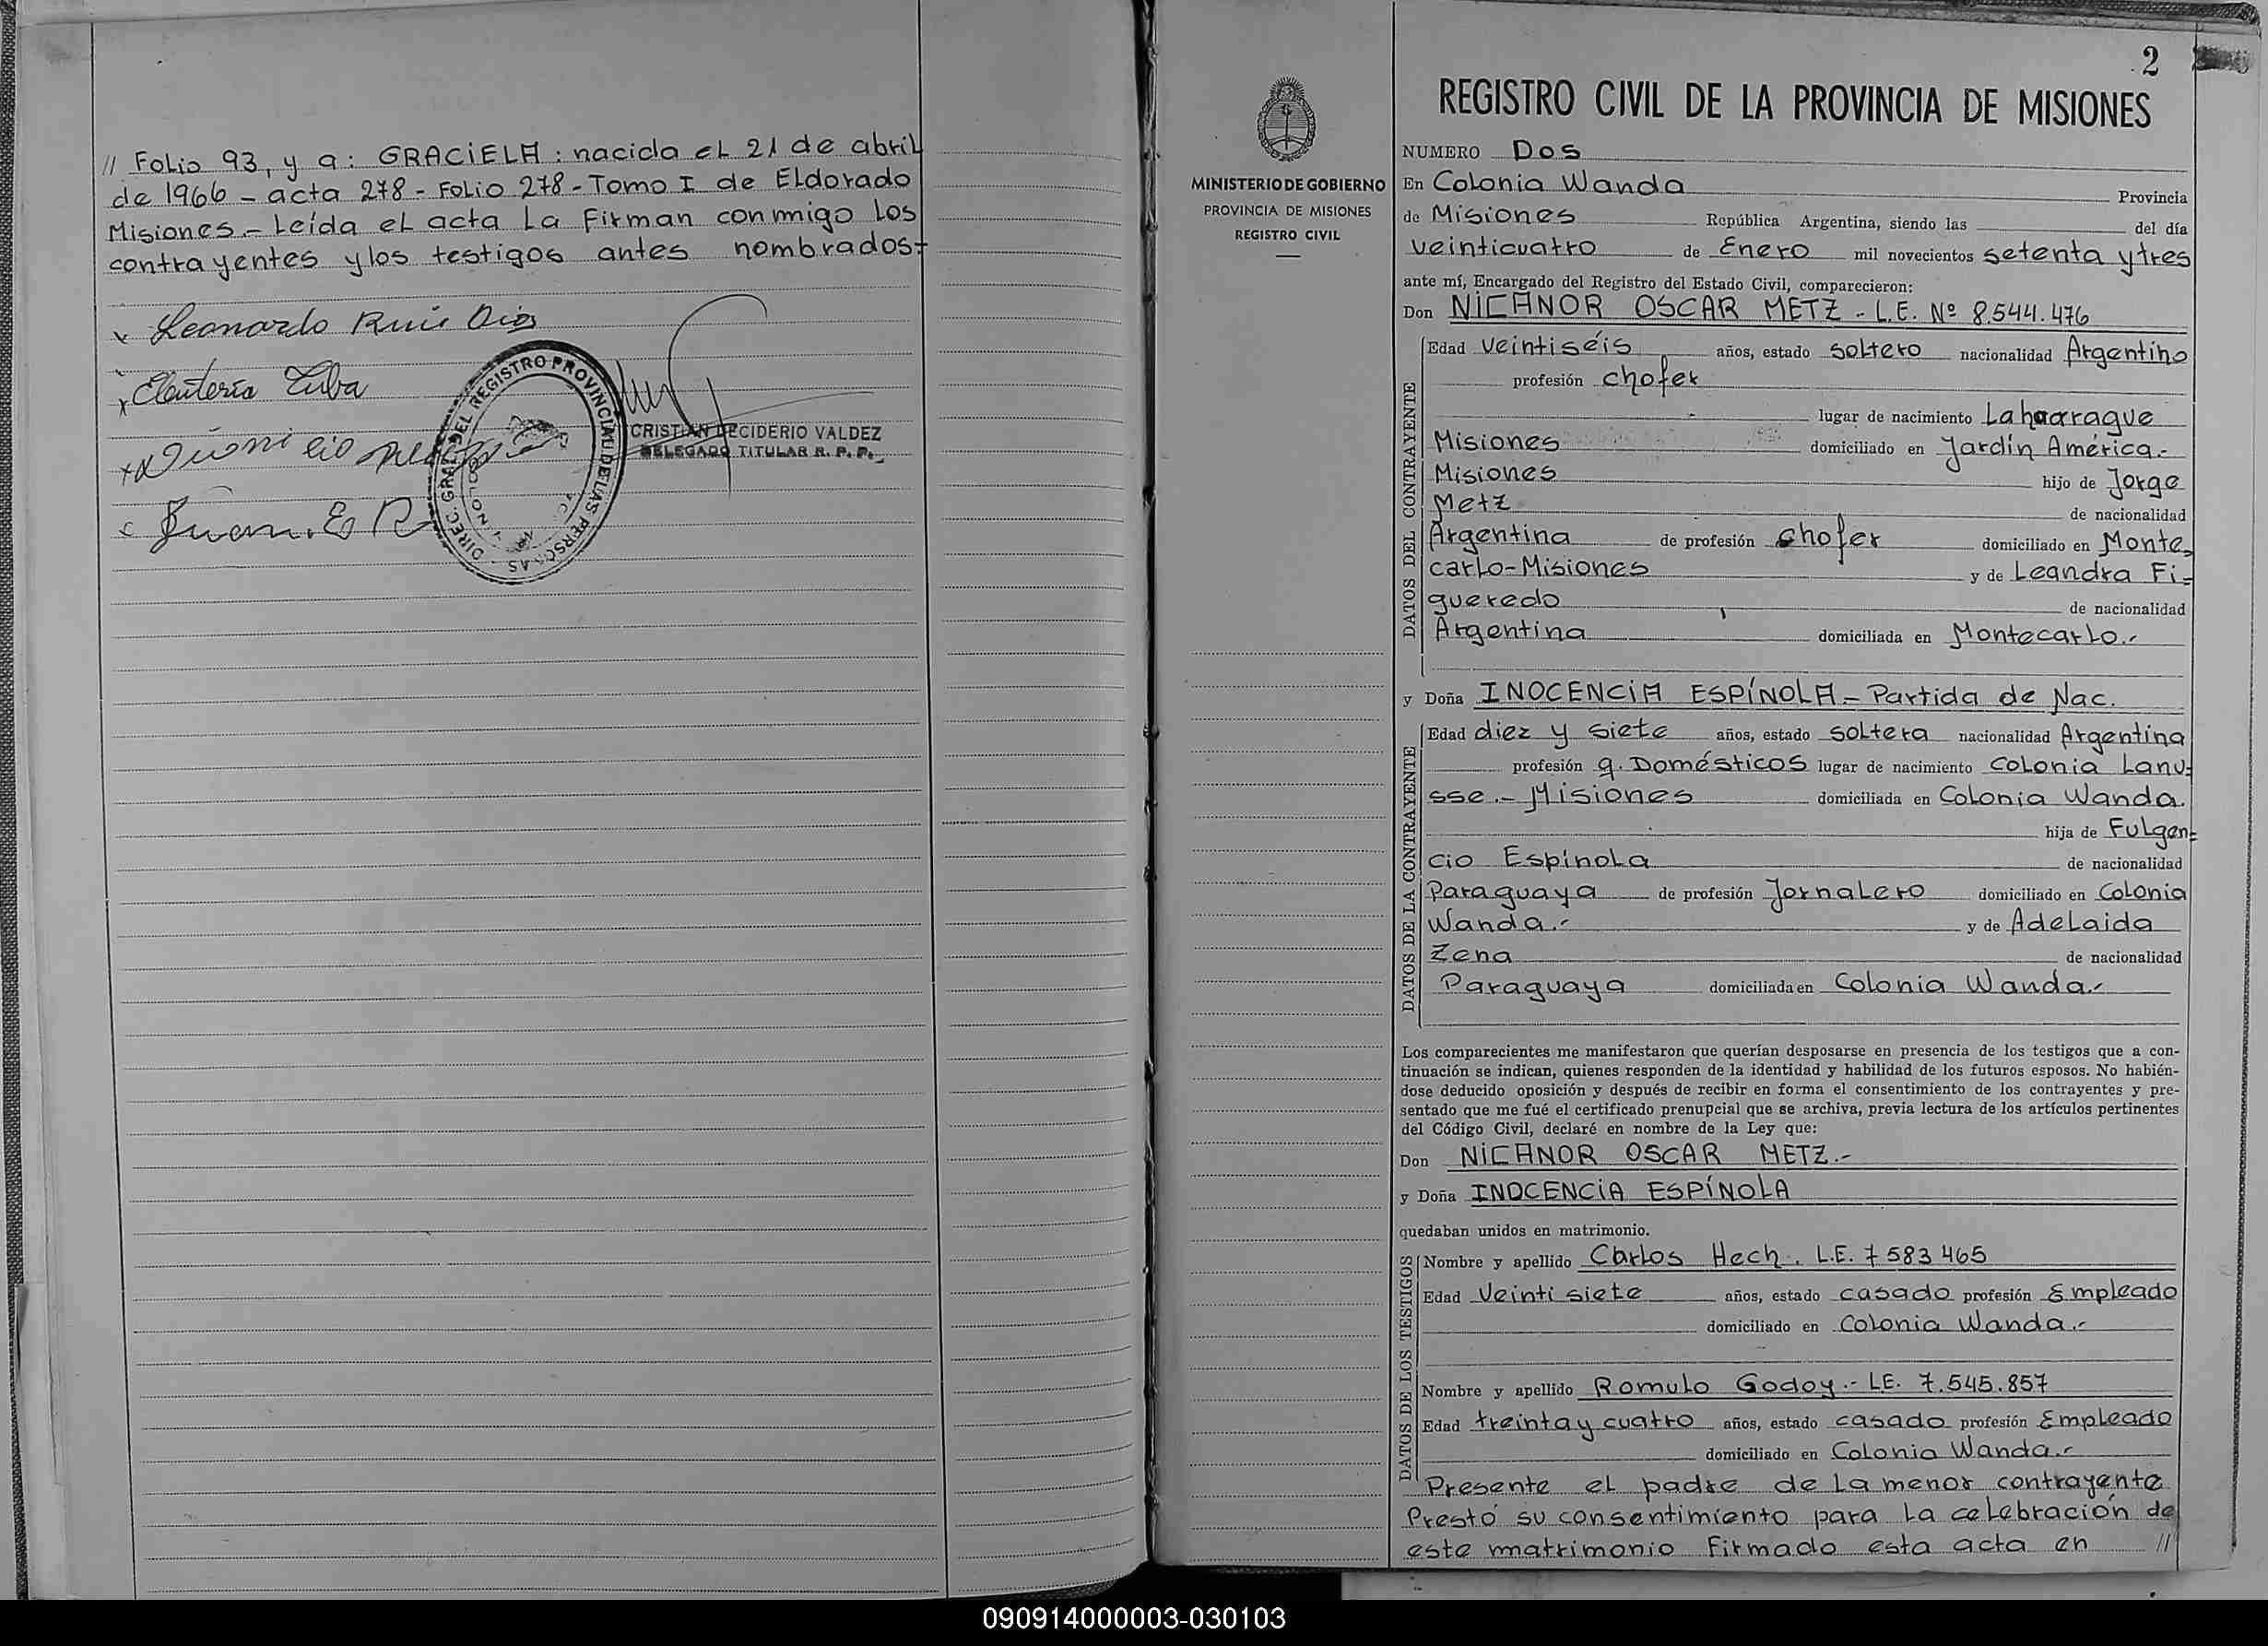 // Folio 93, y a: GRACIELA: nacida el 21 de abril
de 1966 - acta 278 - Folio 278 - Tomo I de Eldorado
Misiones.- Leída el acta la Firman conmigo los
contrayentes y los testigos antes nombrados.-
Leonardo Ruiz Dias
Eleuteria Cuba
CRISTIAN DECIDERIO VALDEZ
DELEGADO TITULAR R. P. P.
DIREC. GRAL. DEL REGISTRO PROVINCIAL DE LAS PERSONAS
Juan. E. R
2
MINISTERIO DE GOBIERNO
PROVINCIA DE MISIONES
REGISTRO CIVIL
REGISTRO CIVIL DE LA PROVINCIA DE MISIONES
NUMERO Dos
En Colonia Wanda Provincia
de Misiones República Argentina, siendo las del día
veinticuatro de Enero mil novecientos setenta y tres
ante mí, Encargado del Registro del Estado Civil, comparecieron:
Don NICANOR OSCAR METZ - L.E. Nº 8.544.476
DATOS DEL CONTRAYENTE
Edad veintiséis años, estado soltero nacionalidad Argentino
profesión chofer
lugar de nacimiento Laharrague
Misiones domiciliado en Jardín América.-
Misiones hijo de Jorge
Metz de nacionalidad
Argentina de profesión chofer domiciliado en Monte-
carlo-Misiones y de Leandra Fi=
gueredo de nacionalidad
Argentina domiciliada en Montecarlo.-
y Doña INOCENCIA ESPÍNOLA - Partida de Nac.
DATOS DE LA CONTRAYENTE
Edad diez y siete años, estado soltera nacionalidad Argentina
profesión q. Domésticos lugar de nacimiento Colonia Lanu=
sse.- Misiones domiciliada en Colonia Wanda.
hija de Fulgen=
cio Espínola de nacionalidad
Paraguaya de profesión Jornalero domiciliado en Colonia
Wanda.- y de Adelaida
Zena de nacionalidad
Paraguaya domiciliada en Colonia Wanda.-
Los comparecientes me manifestaron que querían desposarse en presencia de los testigos que a con-
tinuación se indican, quienes responden de la identidad y habilidad de los futuros esposos. No habién-
dose deducido oposición y después de recibir en forma el consentimiento de los contrayentes y pre-
sentado que me fué el certificado prenupcial que se archiva, previa lectura de los artículos pertinentes
del Código Civil, declaré en nombre de la Ley que:
Don NICANOR OSCAR METZ.-
y Doña INOCENCIA ESPÍNOLA
quedaban unidos en matrimonio.
DATOS DE LOS TESTIGOS
Nombre y apellido Carlos Hech. L.E. 7583465
Edad Veintisiete años, estado casado profesión Empleado
domiciliado en Colonia Wanda.-
Nombre y apellido Romulo Godoy.- LE. 7.545.857
Edad treinta y cuatro años, estado casado profesión Empleado
domiciliado en Colonia Wanda.-
Presente el padre de la menor contrayente
Prestó su consentimiento para la celebración de
este matrimonio Firmado esta acta en //
090914000003-030103